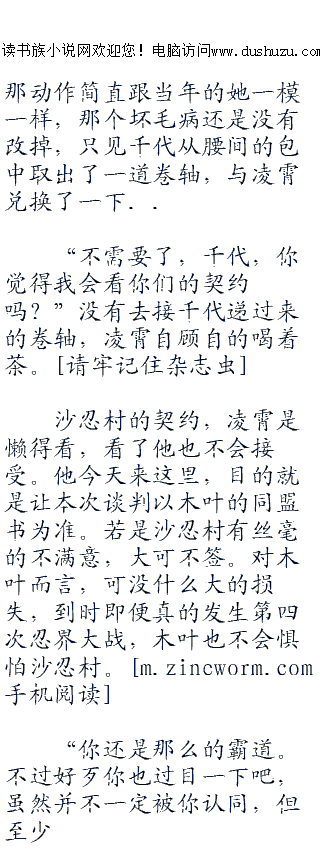 读书族小说网欢迎您！电脑访问www.dushuzu.com
那动作简直跟当年的她一模
一样，那个坏毛病还是没有
改掉，只见千代从腰间的包
中取出了一道卷轴，与凌霄
兑换了一下．．
“不需要了，千代，你
觉得我会看你们的契约
吗？”没有去接千代递过来
的卷轴，凌霄自顾自的喝着
茶。[请牢记住杂志虫]
沙忍村的契约，凌霄是
懒得看，看了他也不会接
受。他今天来这里，目的就
是让本次谈判以木叶的同盟
书为准。若是沙忍村有丝毫
的不满意，大可不签。对木
叶而言，可没什么大的损
失，到时即便真的发生第四
次忍界大战，木叶也不会惧
怕沙忍村。[m.zincworm.com
手机阅读]
“你还是那么的霸道。
不过好歹你也过目一下吧，
虽然并不一定被你认同，但
至少